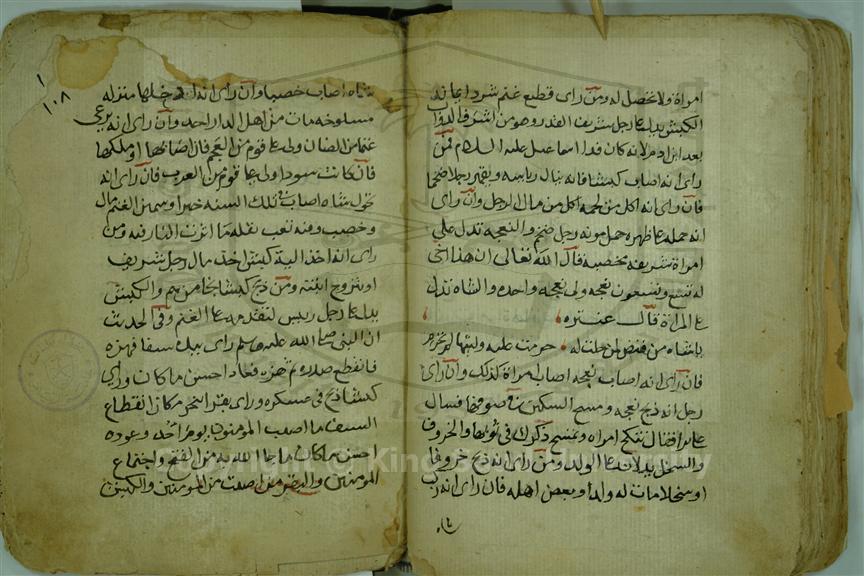 امراة ولا تحصل له ومن راى قطيع غنم شرد ايمانه
الكبش يدل على رجل شريف القدر وهو من اشرف الدواب
بعد ابن ادم لانه كان فدا اسماعيل عليه السلام فمن
راى انه اصاب كبشا فانه ينال رياسه ويقهر رجلا ضخما
فان راى انه اكل من لحمه اكل من مال الرجل وان راى
انه حمله على ظهره حمل مونة رجل ضخم والنعجه تدل على
امراة شريفه مخصبة قال الله تعالى ان هذا اخى
له تسع وتسعون نعجه ولى نعجه واحده والشاه تدل
على المراة قال عنتره
يا شاه من قنص لمن حلت له حرمت عليه وليتها لم تحرم
فان راى انه اصاب نعجه اصاب امراة كذلك وان راى
رجل انه ذبح نعجه ومسح السكين فى صوفها فسال
عابرا فقال تنكح امراه وتمسح ذكرك فى ثوبها والخروف
والسخل يدلان على الولد ومن راى انه ذبح خروفا
او سخلا مات له ولد او بعض اهله فان راى انه
١
١٠٨
شاه اصاب خصبا وان راى انه ادخلها منزله
مسلوخه مات من اهل الدار احد وان راى انه يرعى
غنما من الضان ولى على قوم من العجم فان اصابها او ملكها
فان كانت سودا ولى على قوم من العرب فان راى انه
شاه اصاب فى تلك السنه خيرا وسمن الغنم مال
وخصب وفيه تعب لقله ما اثرت النار فيه ومن
راى انه اخذ الية كبش اخذ مال رجل شريف
او تزوج ابنته ومن ذبح كبشا نجا من هم والكبش
يدل على رجل رييس لتقدمه على الغنم وفى الحديث
ان النبى صلى الله عليه وسلم راى بيده سيفا فهزه
فانقطع صدره ثم هزه فعاد احسن ما كان وراى
كبشا ذبح فى عسكره وراى بقرا تنحر فكان انقطاع
السيف ما اصاب المومنون يوم احد وعوده
احسن ما كان ما جا الله به من الفتح واجتماع
المومنين والبقر من اصيب من المومنين والكبش